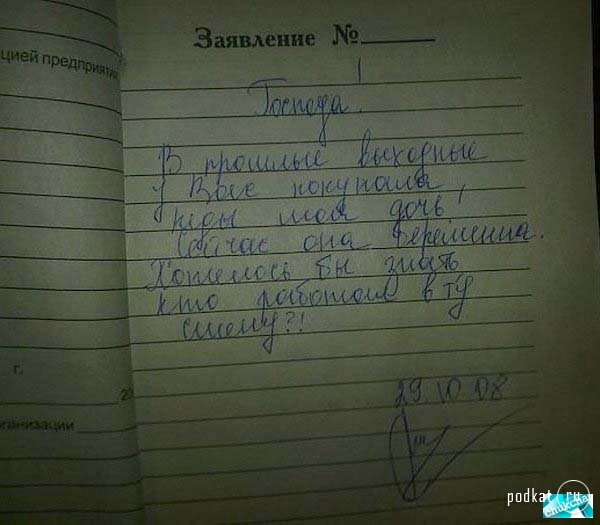 Заявление №
цией предприятия
Господа!
В прошлые выходные
у Вас покупала
кеды моя дочь!
Сейчас она беременна.
Хотелось бы знать
кто работал в ту
смену?!
г.
20
рганизации
29 10 08
podkat.ru
chukcha